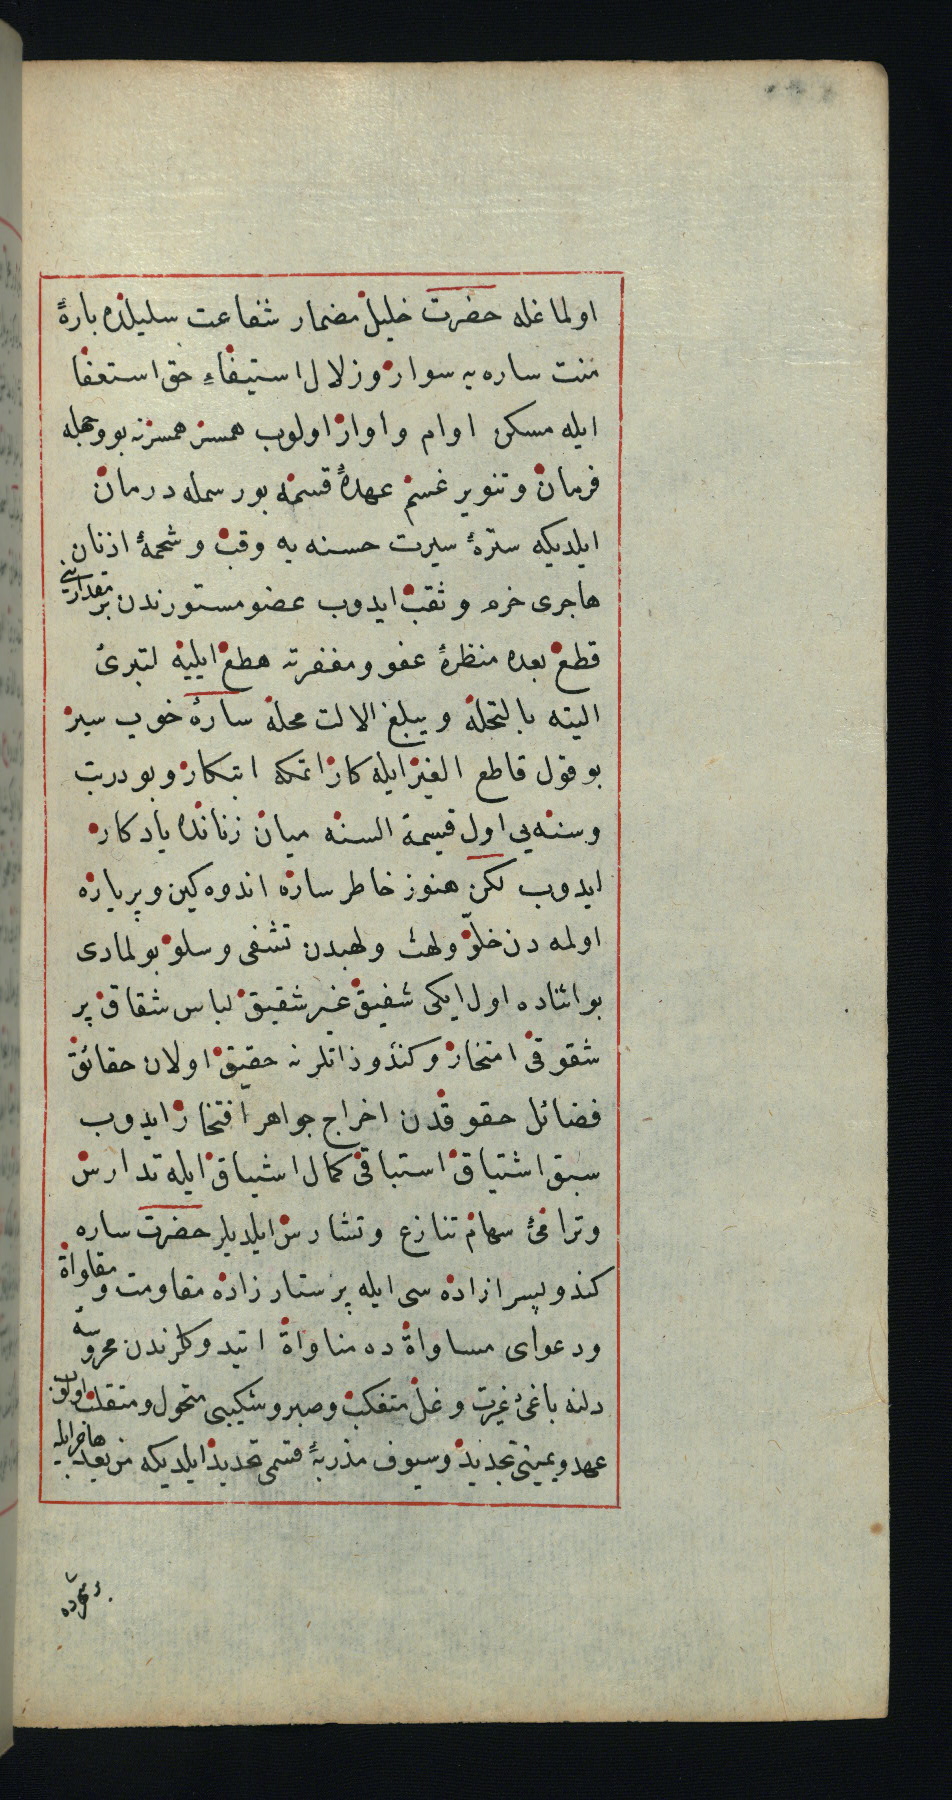 اولماغله حضرت خلیل مضمار شفاعت سلیلنده بارهٔ
منت ساره یه سوار و زلال استیفاء حق استعفا
ایله مسکن اوام و اوار اولوب همسر همسرنه بو وجهله
فرمان و تنویر غسم عهدهٔ قسمنه بو رسمله درمان
ایلدیکه سترهٔ سیرت حسنه یه وقب و شحمهٔ اذنان
هاجری خرم و ثقب ایدوب عضو مستورندن بر مقدارینی
قطع بعده منظرهٔ عفو و مغفرته هطع ایلیه لتبرئ
الیته بالتحلة و یبلغ الالت محله سارهٔ خوب سیر
بو قول قاطع الغیر ایله کار اتمکه ابتکار و بو دربت
و سنه یی اول قسیمة السنه میان زنانده یادکار
ایدوب لکن هنوز خاطر ساره اندوه کین و پریاره
اولمه دن خلو ولهث ولهبدن تشفی و سلو بولمادی
بو اثناده اول ایکی شفیق غیر شقیق لباس شقاق پر
شقوقی امتخار و کندو ذاتلرنه حقیق اولان حقائق
فضائل حقوقدن اخراج جواهر افتخار ایدوب
سبق اشتیاق استباقی کمال اشیاق ایله تدارس
و ترافئ سهام تنازع و تشارس ایلدیلر حضرت ساره
کندو پسر ازاده سی ایله پرستار زاده مقاومت و مقاواة
و دعوای مساواة ده مناواة اتیدوکلرندن محروسه
دلنه باغئ غیرت و غل متفکب و صبر و شکیبی متحول و متقلب اولوب
عهد و یمینی تجدید و سیوف مذربهٔ قسمی تحدید ایلدیکه من بعد هاجر ایله